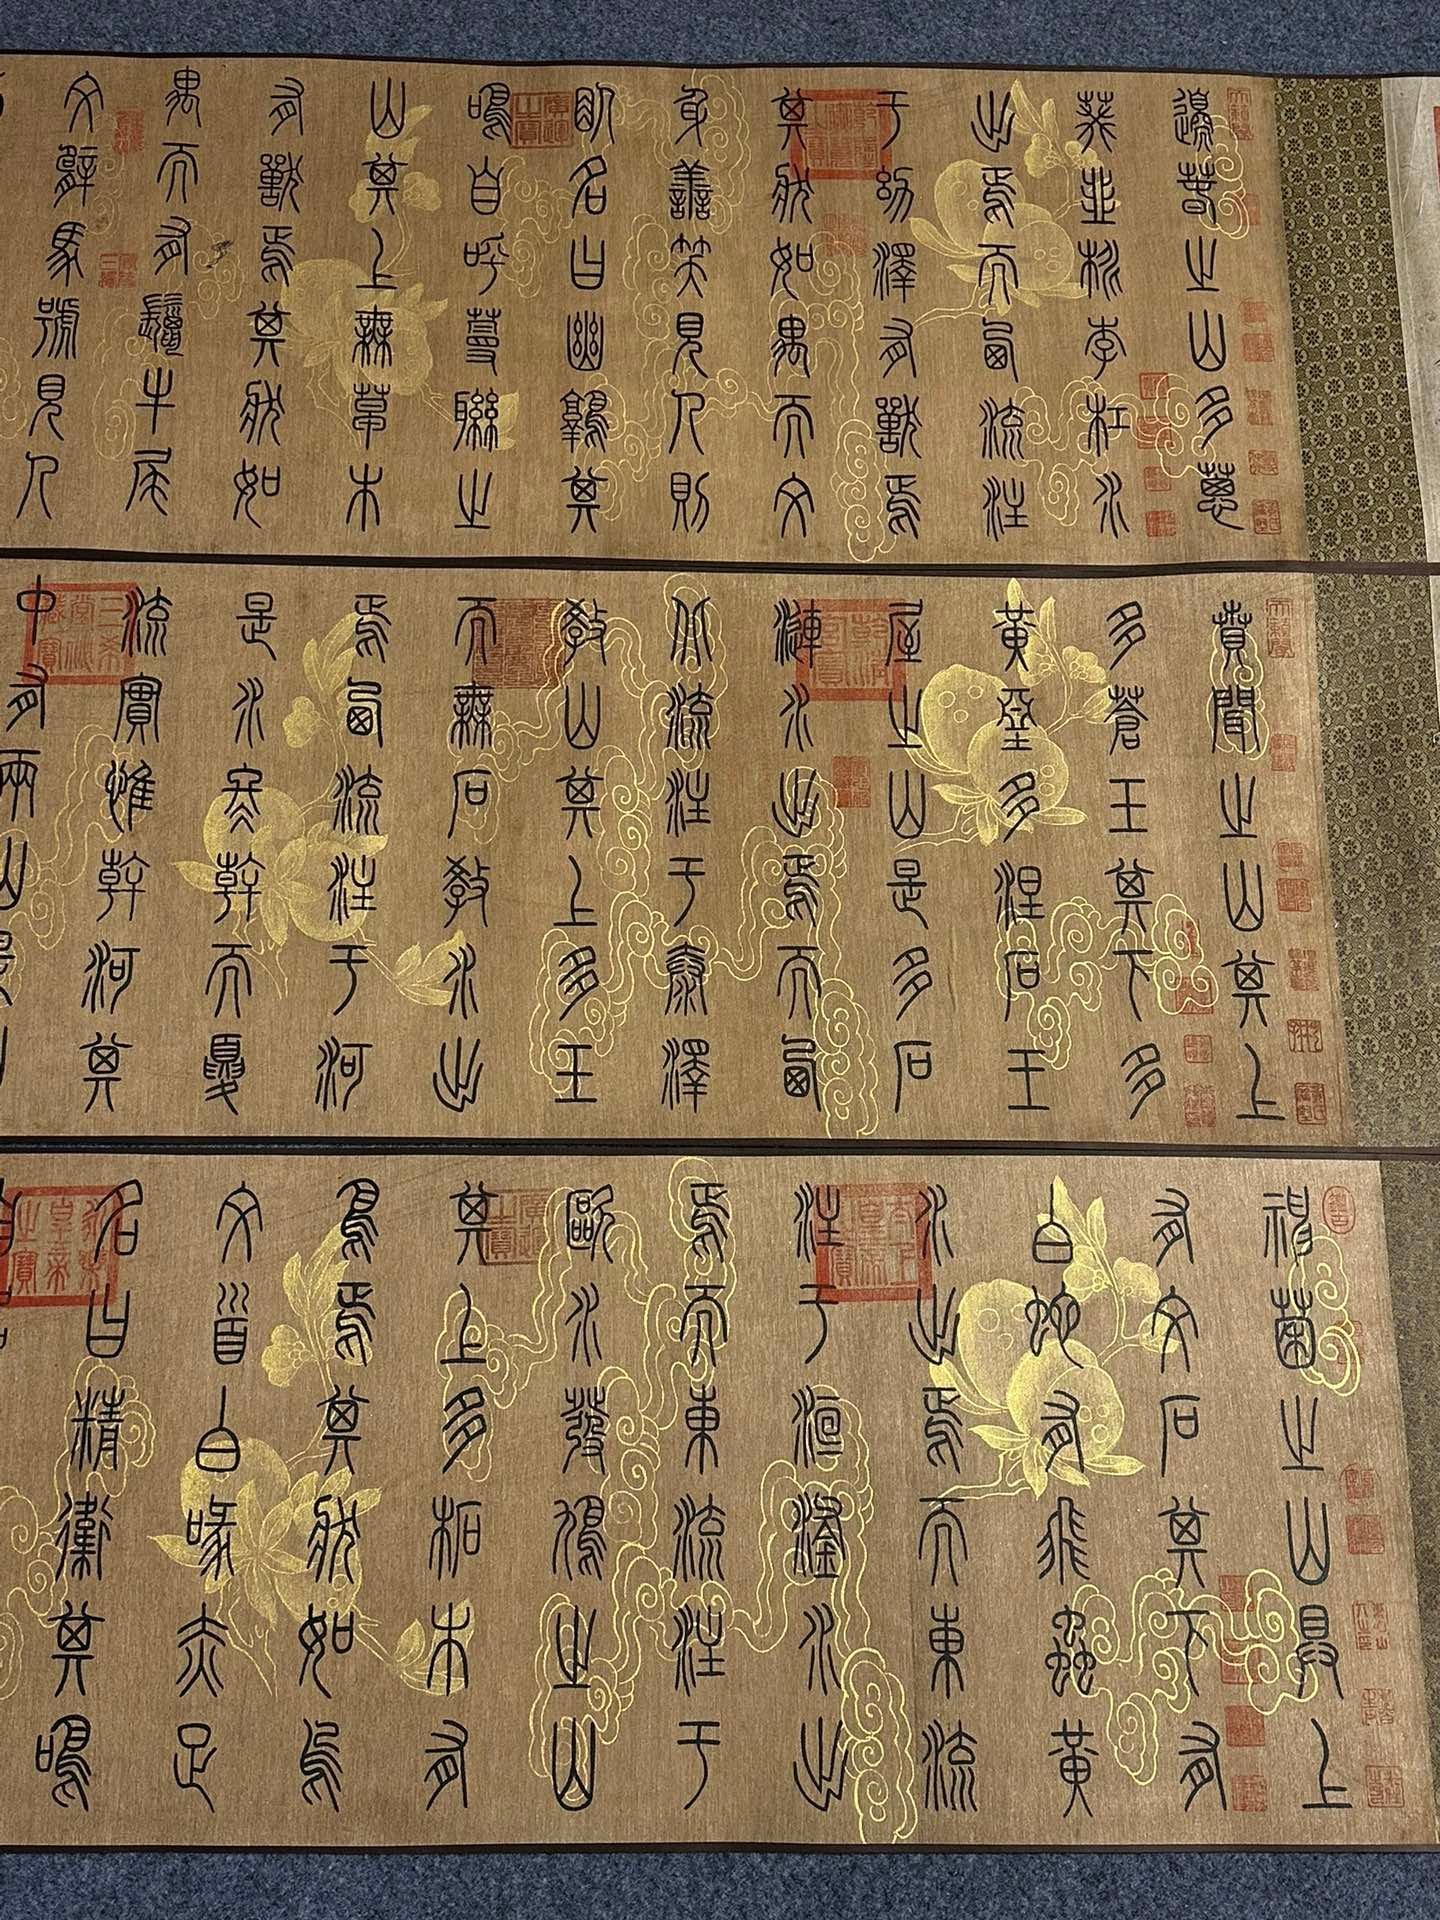 邊春之山多蔥
葵韭桃李杠水
出焉而西流注
于泑澤有獸焉
其狀如禺而文
身善笑見人則
臥名曰幽鴳其
鳴自呼蔓聯之
山其上無草木
有獸焉其狀如
禺而有鬣牛尾
文臂馬蹏見人
賁聞之山其上
多蒼玉其下多
黃堊多涅石王
屋之山是多石
漣水出焉而西
北流注于泰澤
教山其上多玉
而無石教水出
焉西流注于河
是水冬乾而夏
流實惟乾河其
中有兩山是山
神囷之山其上
有文石其下有
白蛇有飛蟲黃
水出焉而東流
注于洹滏水出
焉而東流注于
歐水發鳩之山
其上多柘木有
鳥焉其狀如烏
文首白喙赤足
名曰精衛其鳴